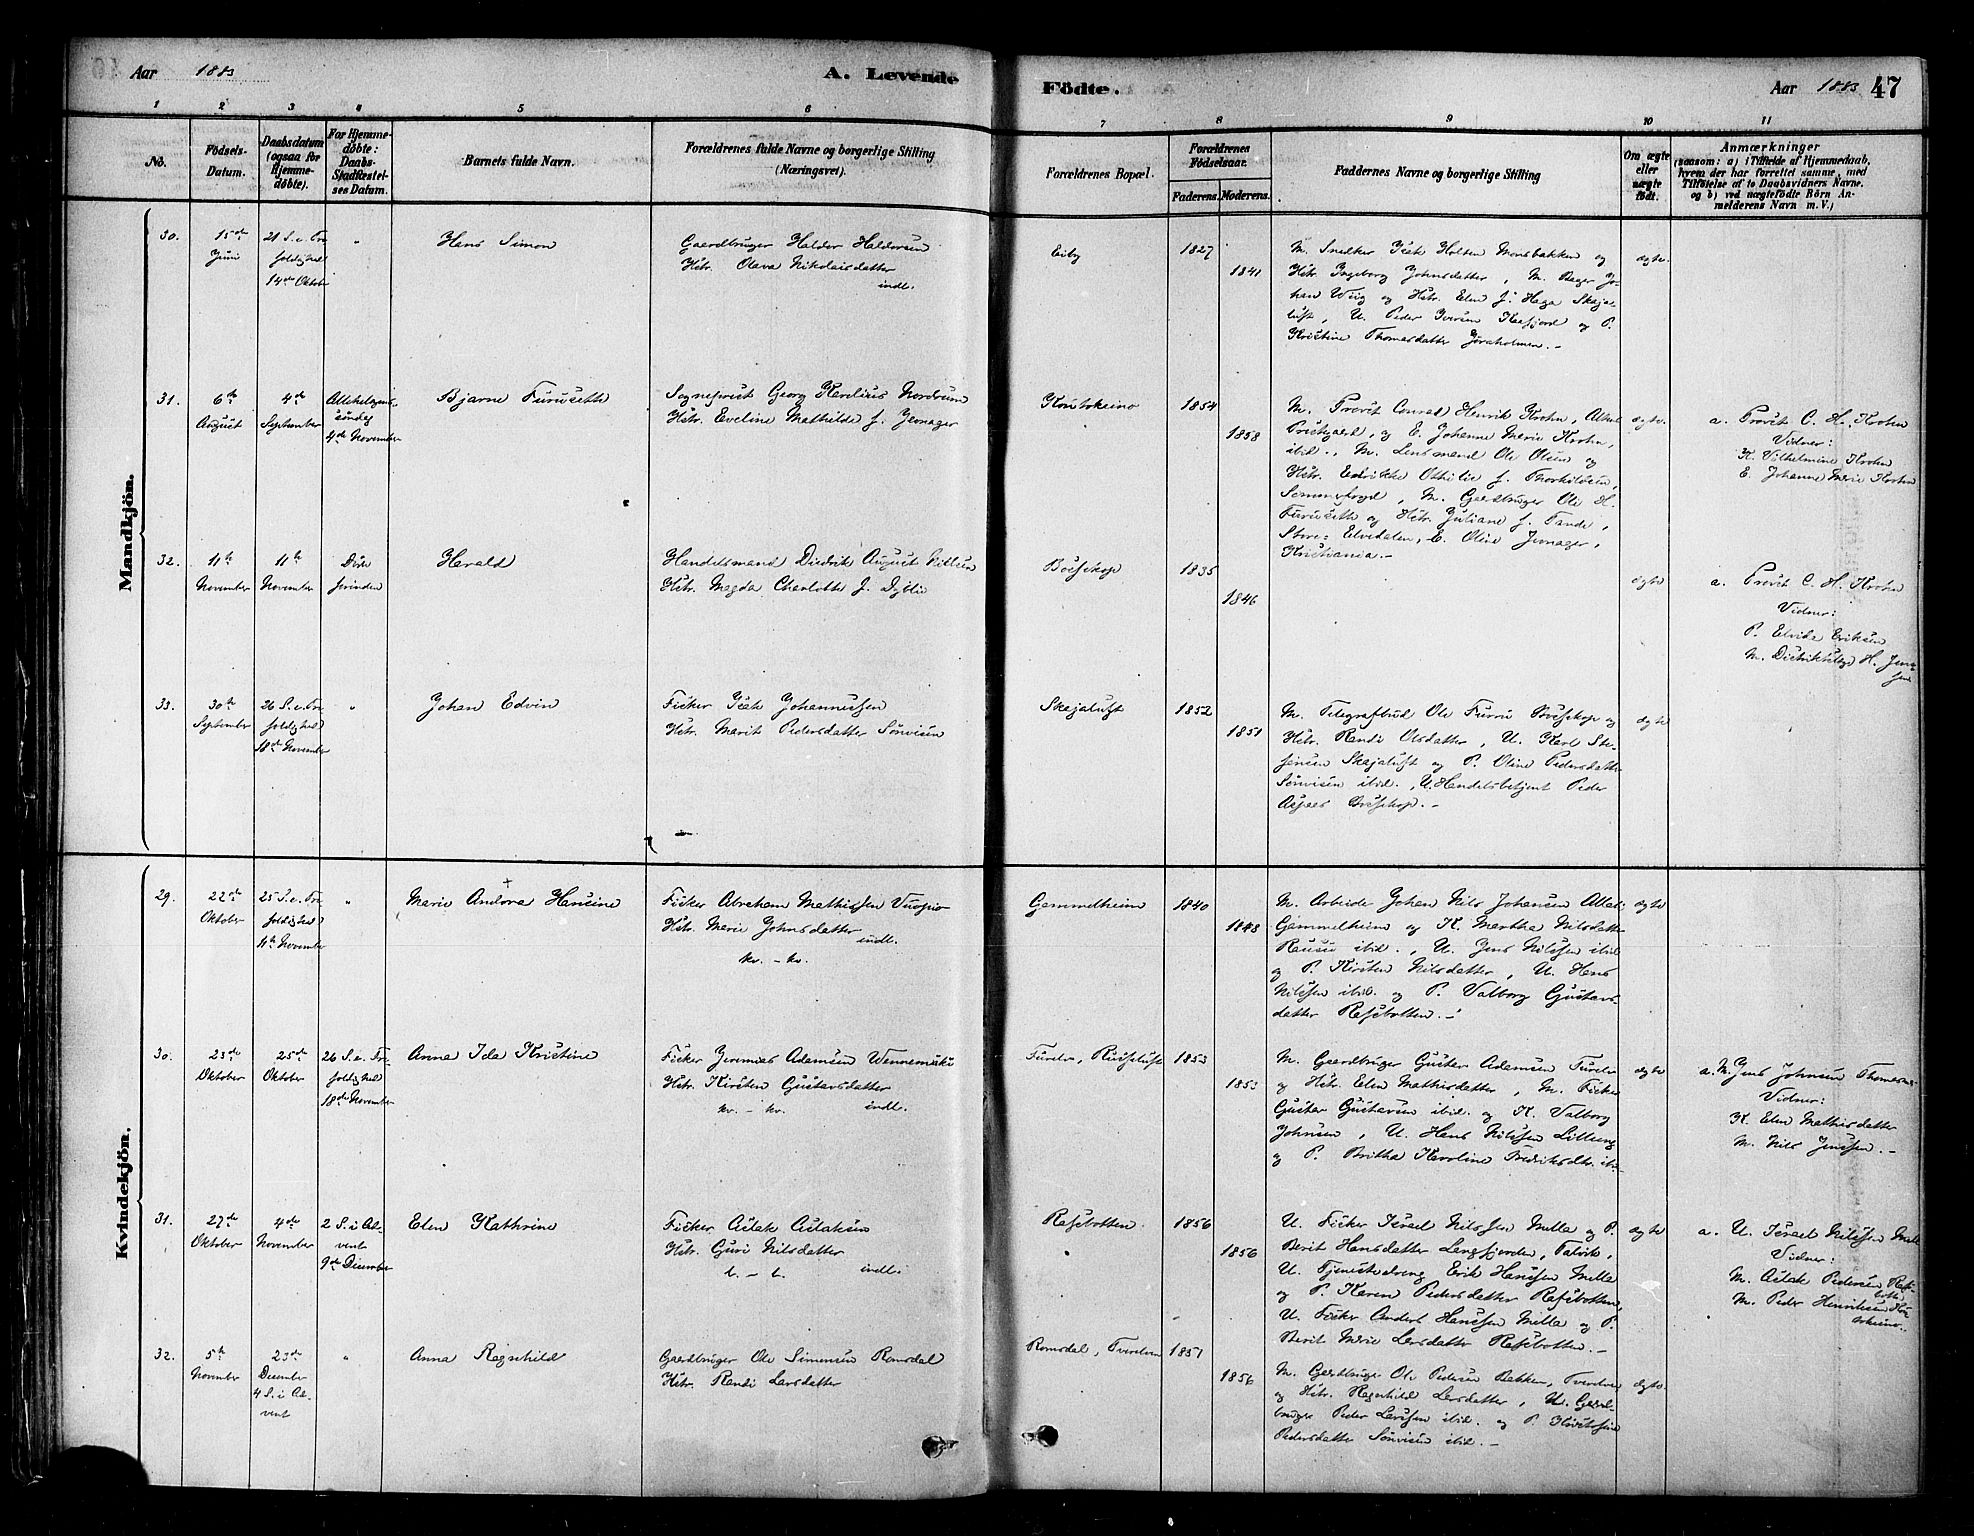 Aar 1883
A. Levende
Födte.
Aar 1883 47
1 2 3 4 5 6 7 8 9 10 11
No.
Födsels-
Datum.
Daabsdatum
(ogsaa for
Hjemme-
döbte).
For Hjemme-
döbte:
Daabs-
Stadfæstel-
ses Datum.
Barnets fulde Navn.
Forældrenes fulde Navne og borgerlige Stilling
(Næringsvei).
Forældrenes Bopæl.
Forældrenes
Födselsaar.
Faderens. Moderens.
Faddernes Navne og borgerlige Stilling
Om ægte
eller
uægte
födt.
Anmærkninger
(saasom: a) i Tilfælde af Hjemmedaab,
hvem der har forrettet samme, med
Tilföielse af to Daabsvidners Navne,
og b) ved uægtefödte Börn An-
melderens Navn m. V.)
Mandkjön.
30.
15de
Juni
21 S. e. Tre
foldighed
14de Oktober
"
Hans Simon
Gaardbruger Halder Haldorsen
Hstr. Olava Nikolaisdatter
indl.
Eiby
1827
1841
M. Snedker Isak Holten Monsbakken og
Hstr. Ingeborg Johnsdatter, M. Bager Jo-
han Wiig og Hstr. Elen J. Haga Skaja-
luft, U. Peder Iversen Kaafjord og P.
Kristine Thomasdatter Jöraholmen.-
ægte.
31.
6te
August
4de
September
Allehelgens-
söndag
4de November
Bjarne Furuseth
Sognepræst Georg Karelius Nordrum
Hstr. Eveline Mathilde f. Jernager
Koutokeino
1854
1858
M. Provst Conrad Henrik Krohn, Alten
Præstgaard, og E. Johanne Marie Krohn,
ibid., M. Lensmand Ole Olsen og
Hstr. Edvikke Othilie f. Thorkildsen,
M. Gaardbruger Ole H.
Furuseth og Hstr. Juliane f. Tande,
Store-Elvedalen, E. Oline Jernager,
Kristiania.-
ægte.
a. Provst C. H. Krohn
Vidner:
K. Vilhelmine Krohn
E. Johanne Marie Krohn
32.
11te
November
11te
November
Döde
forinden
Harald
Handelsmand Diedrik August Nielsen
Hstr. Magda Charlotte f. Dybli
Bossekop
1835
1846
ægte
a. Provst C. H. Krohn
Vidner:
P. Elvida Eriksen
M. H. Jens-
sen
33.
30te
September
26 S. e. Tre
foldighed
18de November
"
Johan Edvin
Fisker Isak Johannessen
Hstr. Marit Pedersdatter Sönvisen
Skajaluft
1852
1851
M. Telegrafbud Ole Furru Bossekop og
Hstr. Randi Olsdatter, U. Karl Ste-
fensen Skajaluft og P. Oline Pedersdatter
Sönvisen ibid., U. Handelsbetjent Peder
Aspaas Bossekop.-
ægte
Kvindekjön.
29.
22de
Oktober
25 S. e. Tre
foldighed
11te November
"
Marie Andora Hansine
Fisker Abraham Mathissen Vuopio
Hstr. Marie Johnsdatter
indl.
kv. - kv.
Gammelheim
1840
1843
M. Arbeider Johan Nils Johansen Alten
Gammelheim og K. Martha Nilsdatter
ibid., U. Jens Nilssen ibid
og P. Kirsten Nilsdatter, U. Hans
Nilssen ibid. og P. Valborg Gustavs-
datter Rafsbotten.-
ægte
30.
23de
Oktober
25de
Oktober
26 S. e. Tre-
foldighed
18de November
Anna Ida Kristine
Fisker Jeremias Adamsen Wennemäki
Hstr. Kirsten Gustavsdatter
kv. - kv. indl.
Tverelv, Russeluft
1853
1853
M. Gaardbruger Gustav Adamsen Tverelv
og Hstr. Elen Mathisdatter, M. Fisker
Gustav Gustavsen ibid. og K. Valborg
Johnsen, U. Hans Nilssen Lilleng
og P. Britha Karoline Fredriksdtr. ibid.-
ægte
a. M. Jens Johnsen
Vidner:
K. Elen Mathisdatter
M. Nils Jenssen.-
31.
27de
Oktober
4de
November
2 S. i Ad-
vent
9de December
Elen Kathrine
Fisker Aslak Aslaksen
Hstr. Guri Nilsdatter
l. - l. indl.
Rafsbotten
1856
1856
U. Fisker Israel Nilssen Mella og P.
Berit Hansdatter Langfjorden, Talvik,
U. Tjenestedreng Erik Hanssen Mella
og P. Karen Pedersdatter Rafsbotten,
U. Fisker Anders Hanssen Mella og P.
Berit Marie Larsdatter Rafsbotten.-
ægte
a. U. Israel Nilssen Mella
Vidner:
M. Aslak Pedersen Rafs-
botten
M. Peder Henriksen Kou-
tokeino.
32.
5te
November
23de
December
4 S. i Ad-
vent
"
Anna Ragnhild
Gaardbruger Ole Simensen Romsdal
Hstr. Randi Larsdatter
Romsdal, Tverelven
1851
1856
M. Gaardbruger Ole Pedersen Bakken, Tverelven
og Hstr. Ragnhild Larsdatter, U. Gaard-
bruger Peder Larssen ibid. og P.
Pedersdatter Sönvisen ibid.-
ægte.